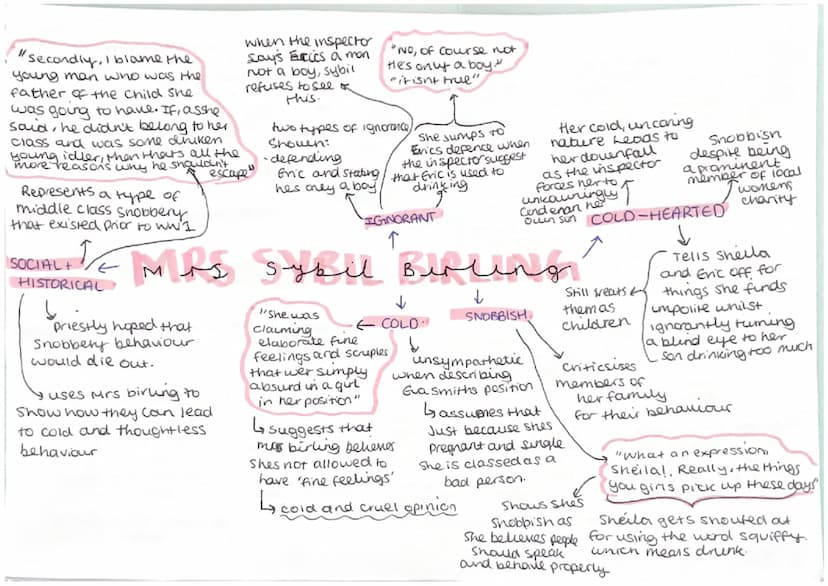 "Secondly, I blame the
young man who was the
father of the child she
was going to have. If, asshe
said, he didn't belong to her
class and was some drunken
young idler, than thats all the
more reasons why he shouldn't
escape"
Represents a type of
middle class snobbery
that existed prior to WW1
SOCIAL +
HISTORICAL
priestly hoped that
snobbery behaviour
would die out.
uses Mrs birling to
show how they can lead
to cold and thoughtless
behaviour
MRS SYBIL BIRLING
Mrs Sybil Birling
when the inspector
says Erics a man
not a boy, sybil
refuses to see
this.
"No, of course not
He's only a boy."
"it isnt true"
two types of ignorance
shown:
- defending
Eric and stating
hes only a boy
She jumps to
Erics defence when
the inspector suggest
that Eric is used to
drinking
IGNORANT
Her cold, uncaring
nature leads to
her downfall
as the inspector
forces her to
unknowingly
own son
Snobbish
despite being
a prominent
member of local
womens
charity
COLD-HEARTED
Tells Sheila
and Eric off for
things she finds
impolite whilst
ignorantly turning
a blind eye to her
son drinking too much
Still treats
them as
children
COLD.
"She was
claiming
elaborate fine
feelings and scruples
that wer simply
absurd in a girl
in her position"
suggests that
mrs birling believes
shes not allowed to
have 'fine feelings'
cold and cruel opinion
unsympathetic
when describing
Eva smiths position
assumes that
Just because shes
pregnant and single
She is classed as a
bad person.
SNOBBISH
Criticsises
members of
her family
for their behaviour
"What an expression,
Sheila!. Really, the things
you girls pick up these days"
Shows shes
snobbish as
She believes people
should speak
and behave properly
Sheila gets shouted out
for using the word squiffy.
which means drunk.